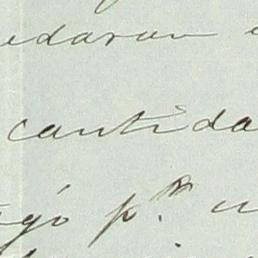 edaron
cantida
gó p.r